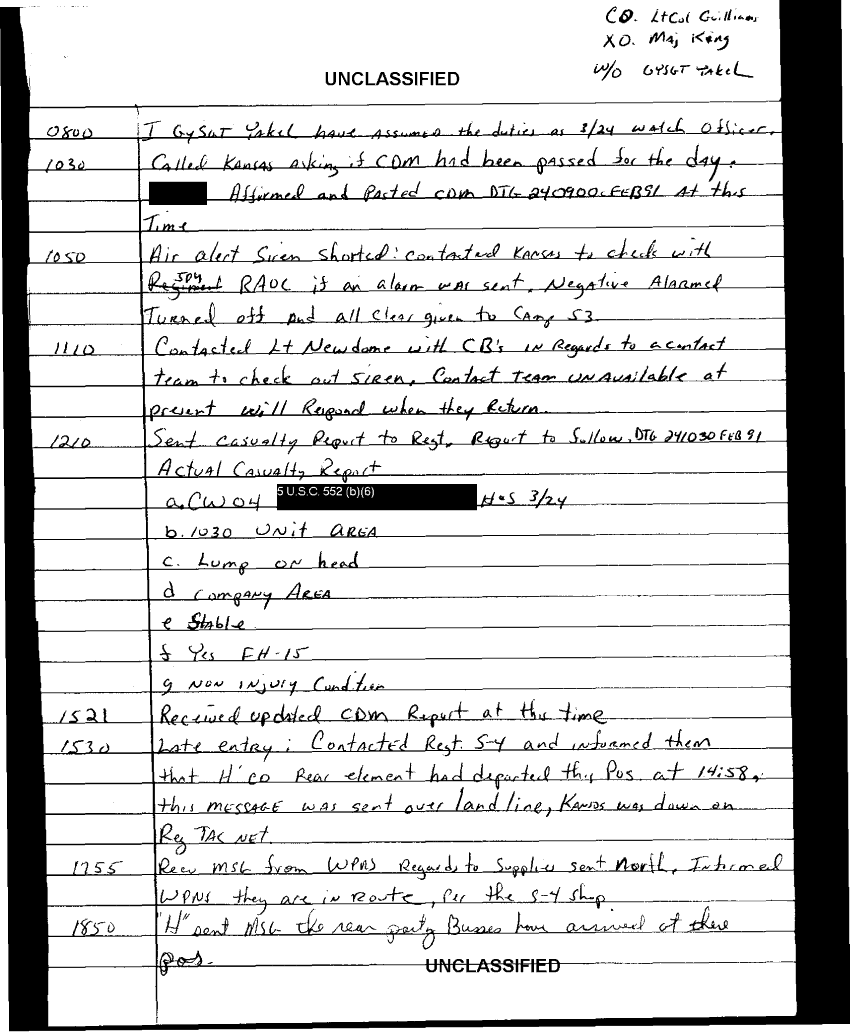 CO. LtCol Guillians
XO. Maj King
W/O GYSGT YAKEL
UNCLASSIFIED
0800 I GySGT YAKEL have assumed the duties as 3/24 watch Officer.
1030 Called Kansas asking if CDM had been passed for the day.
Affirmed and Pasted CDM DTG 240900.FEB91 At this
Time
1050 Air alert Siren Shorted: contacted KANSAS to check with
RAOC if an alarm was sent. Negative Alarmed
Turned off and all Clear given to Camp 53
1110 Contacted Lt Newdome with CB's in Regards to a contact
team to check out SIREN. Contact TEAM UNAVAILABLE at
present will Respond when they Return.
1210 Sent Casualty Report to Regt. Report to follow. DTG 241030 FEB 91
Actual Casualty Report
a. CWO4 5 U.S.C. 552 (b)(6) H&S 3/24
b. 1030 Unit AREA
c. Lump on head
d company AREA
e Stable
f Yes FH-15
g NON INJURY Condition
1521 Received updated CDM Report at this time
1530 Late entry; Contacted Regt. S-4 and informed them
that H' CO Rear element had departed this Pos. at 14:58,
this MESSAGE was sent over land line, Kansas was down on
Reg TAC NET.
1755 Recv MSG from WPNS Regards to Supplies sent North, Informed
WPNS they are in Route, per the S-4 shop
1850 "H" sent MSG the rear party Busses have arrived at there
pos.
UNCLASSIFIED